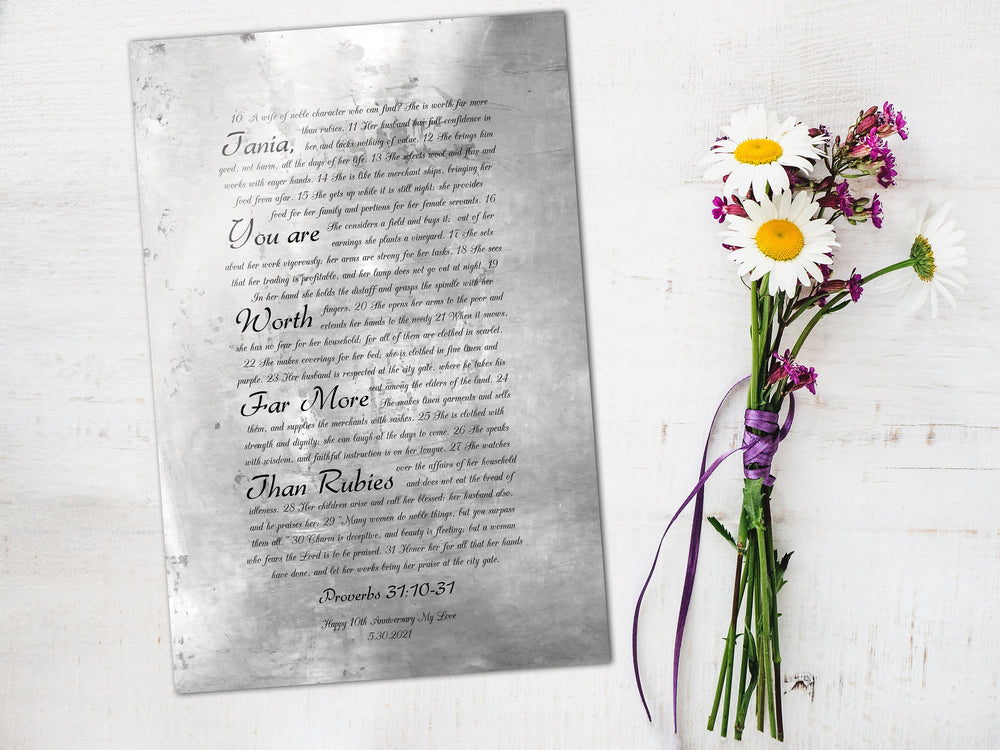 10 A wife of noble character who can find? She is worth far more
than rubies. 11 Her husband has full confidence in
Tania, her and lacks nothing of value. 12 She brings him
good, not harm, all the days of her life. 13 She selects wool and flax and
works with eager hands. 14 She is like the merchant ships, bringing her
food from afar. 15 She gets up while it is still night; she provides
food for her family and portions for her female servants. 16
You are She considers a field and buys it; out of her
earnings she plants a vineyard. 17 She sets
about her work vigorously; her arms are strong for her tasks. 18 She sees
that her trading is profitable, and her lamp does not go out at night. 19
In her hand she holds the distaff and grasps the spindle with her
Worth fingers. 20 She opens her arms to the poor and
extends her hands to the needy 21 When it snows,
she has no fear for her household; for all of them are clothed in scarlet.
22 She makes coverings for her bed; she is clothed in fine linen and
purple. 23 Her husband is respected at the city gate, where he takes his
Far More seat among the elders of the land. 24
She makes linen garments and sells
them, and supplies the merchants with sashes. 25 She is clothed with
strength and dignity; she can laugh at the days to come. 26 She speaks
with wisdom, and faithful instruction is on her tongue. 27 She watches
Than Rubies over the affairs of her household
and does not eat the bread of
idleness. 28 Her children arise and call her blessed; her husband also,
and he praises her: 29 "Many women do noble things, but you surpass
them all." 30 Charm is deceptive, and beauty is fleeting; but a woman
who fears the Lord is to be praised. 31 Honor her for all that her hands
have done, and let her works bring her praise at the city gate.
Proverbs 31:10-31
Happy 10th Anniversary My Love
5.30.2021